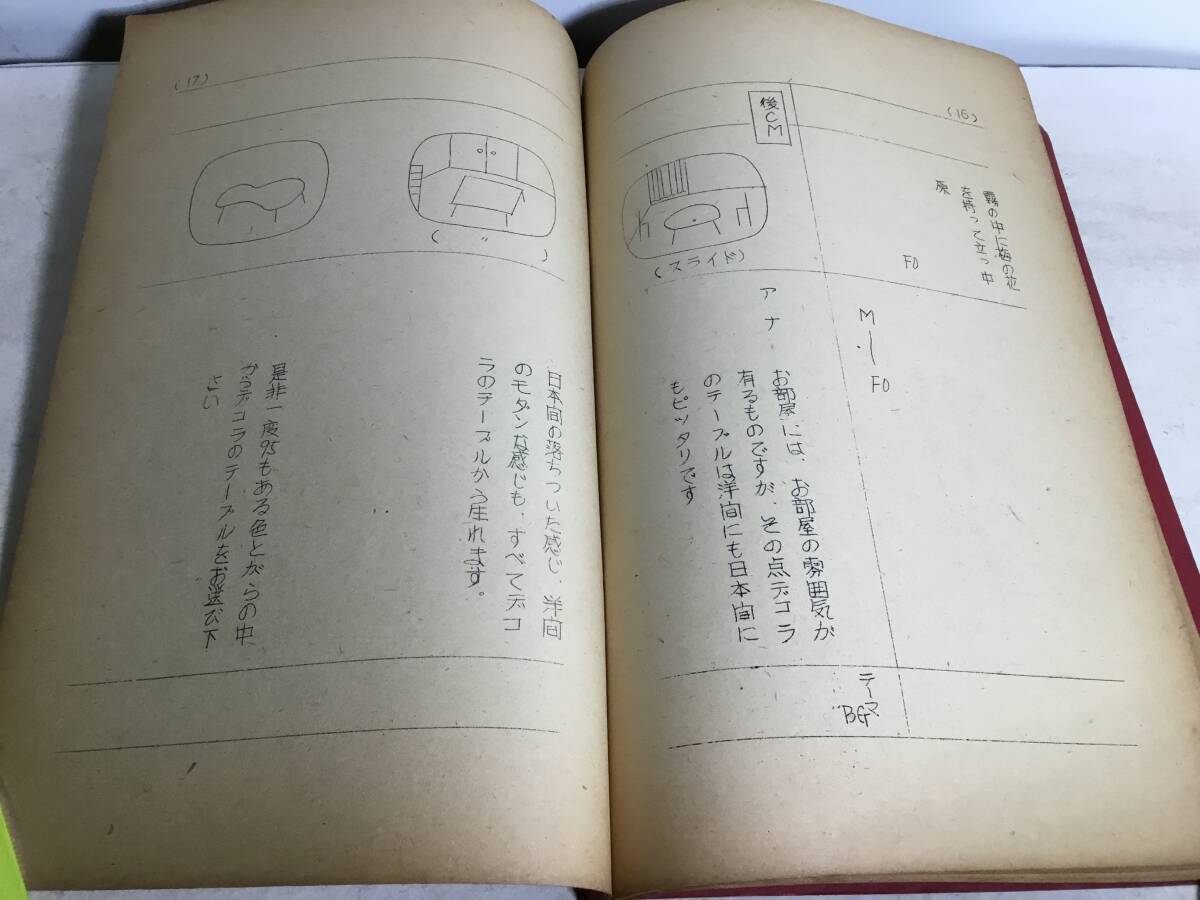 (16)
霧の中に梅の花
を持って立つ中
原
FO
M
FO
後CM
(スライド)
アナ
お部屋には、お部屋の雰囲気が
有るものですが、その点デコラ
のテーブルは洋間にも日本間に
もピッタリです
テーマ
BG
(17)
( 〃 )
日本間の落ちついた感じ、洋間
のモダンな感じも、すべてデコ
ラのテーブルから生れます。
是非一度95もある色とがらの中
からデコラのテーブルをお選び下
さい